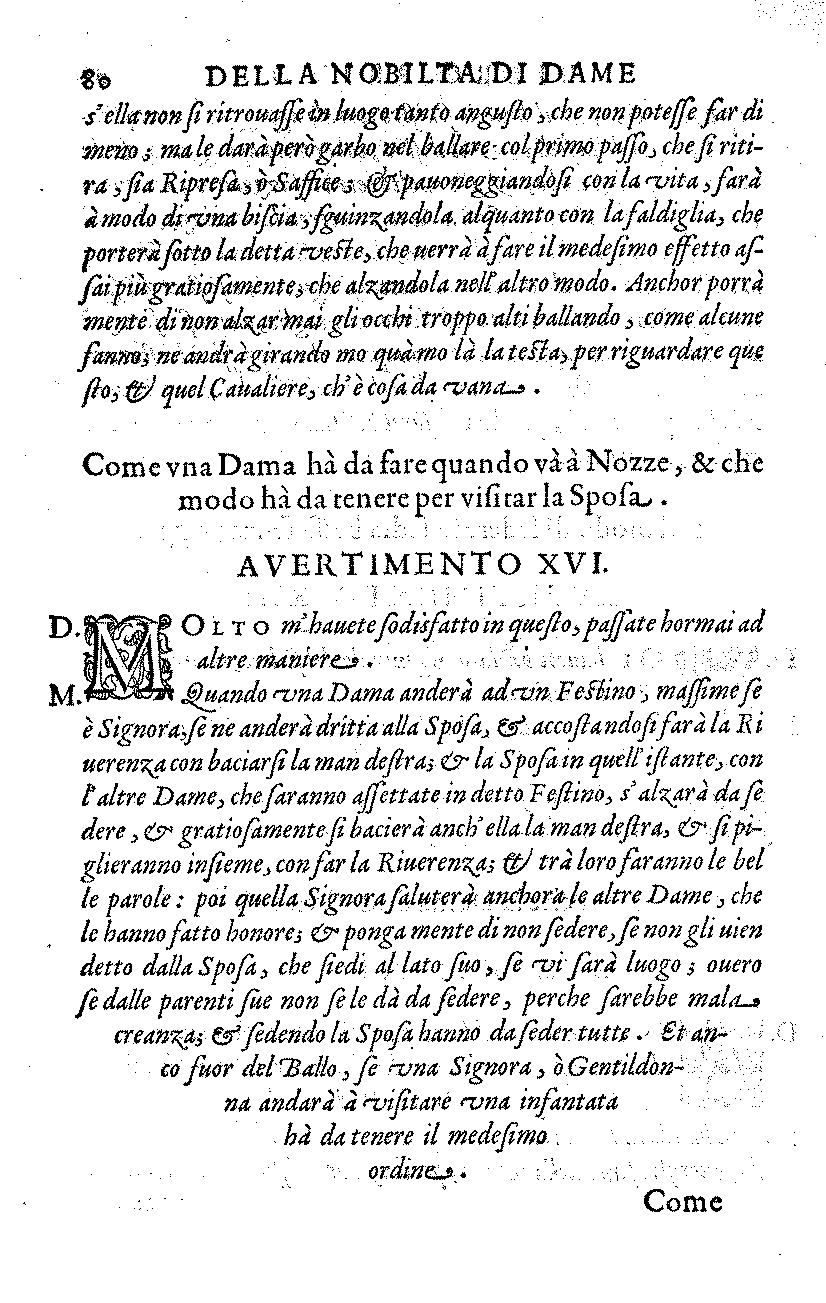 80 DELLA NOBILTA DI DAME
s'ella non si ritrouasse in luogo tanto angusto, che non potesse far di
meno; ma le darà però garbo nel ballare col primo passo, che si riti-
ra, sia Ripresa, ò Saffice; & pauoneggiandosi con la vita, farà
à modo di vna biscia, sguinzandola alquanto con la faldiglia, che
porterà sotto la detta veste, che uerrà à fare il medesimo effetto as-
sai più gratiosamente, che alzandola nell'altro modo. Anchor porrà
mente di non alzar mai gli occhi troppo alti ballando, come alcune
fanno; ne andrà girando mo quà mo là la testa, per riguardare que
sto, & quel Caualiere, ch'è cosa da vana.
Come vna Dama hà da fare quando và à Nozze, & che
modo hà da tenere per visitar la Sposa.
AVERTIMENTO XVI.
D. MOLTO m'hauete sodisfatto in questo, passate hormai ad
altre maniere.
M. Quando vna Dama anderà ad vn Festino, massime se
è Signora, se ne anderà dritta alla Sposa, & accostandosi farà la Ri
uerenza con baciarsi la man destra; & la Sposa in quell'istante, con
l'altre Dame, che saranno assettate in detto Festino, s'alzarà da se
dere, & gratiosamente si bacierà anch'ella la man destra, & si pi-
glieranno insieme, con far la Riuerenza; & trà loro faranno le bel
le parole: poi quella Signora saluterà anchora le altre Dame, che
le hanno fatto honore; & ponga mente di non sedere, se non gli uien
detto dalla Sposa, che siedi al lato suo, se vi sarà luogo; ouero
se dalle parenti sue non se le dà da sedere, perche sarebbe mala
creanza; & sedendo la Sposa hanno da seder tutte. Et an-
co fuor del Ballo, se vna Signora, ò Gentildon-
na andarà à visitare vna infantata
hà da tenere il medesimo
ordine.
Come